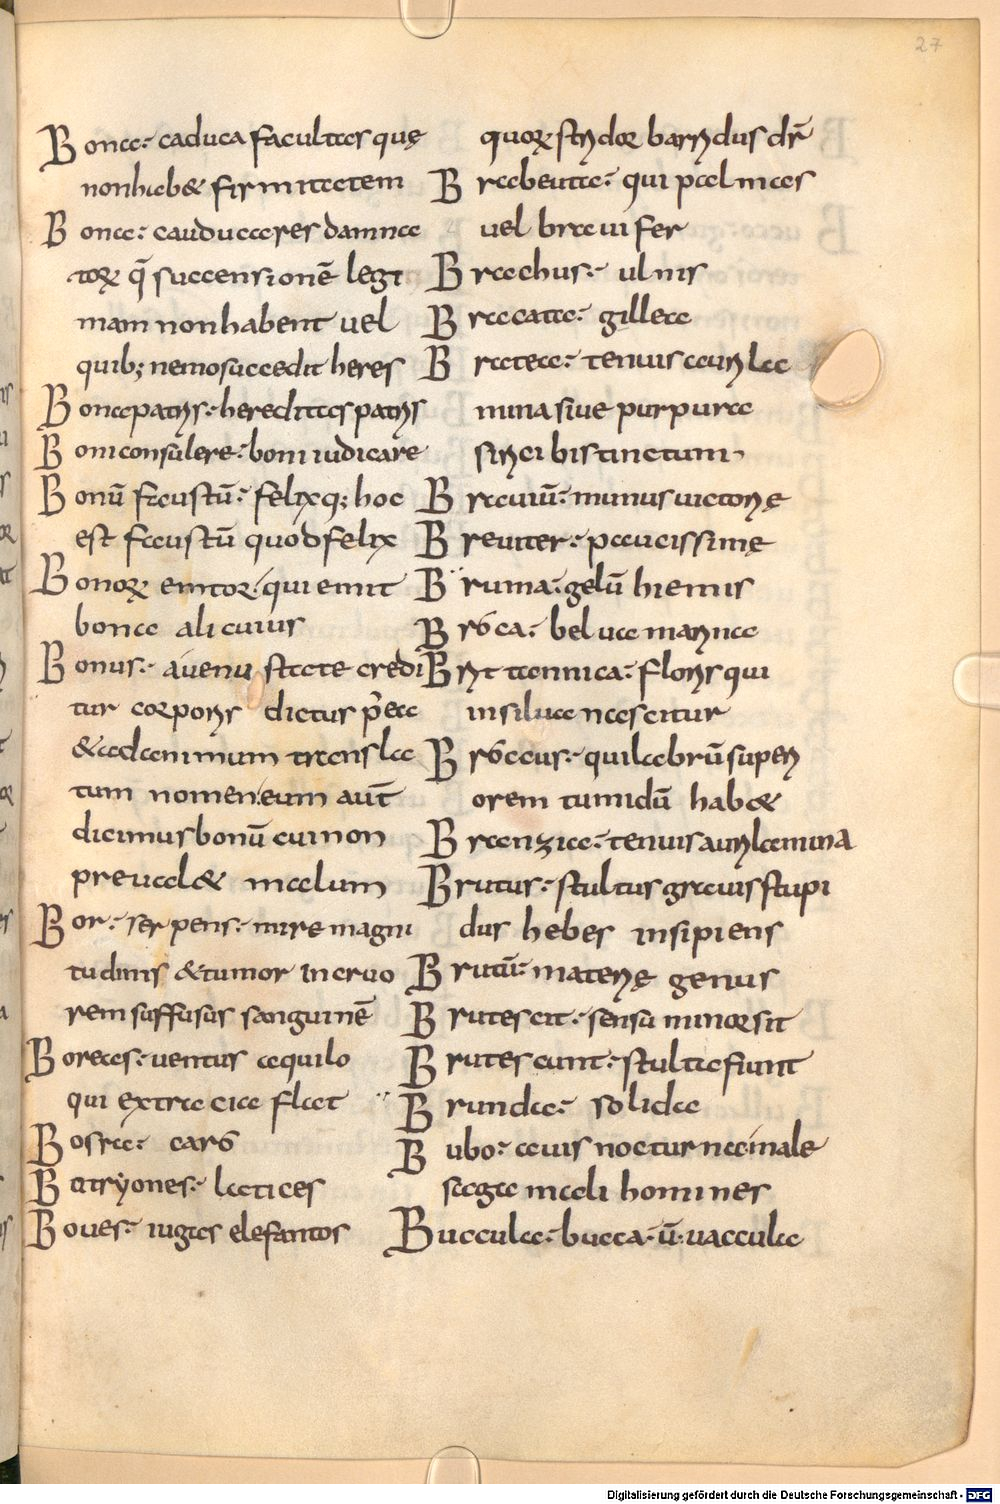 27
Bona: caduca facultas quę
non hab& firmitatem
Bona: cauduca res damna
toꝝ q̄ successionē legi
mam non habent uel
quib; nemo succedit heres
Bona patris: hereditas patris
Boni consulere: boni iudicare
Bonū faustū: felixq; hoc
est faustū quod felix
Bonoꝝ emitor: qui emit
bona alicuius
Bonus: a uenustate credi
tur corporis dictus p̄ea
& ad animum transla
tum nomen eum aut̄
dicimus bonū cui non
preual& malum
Bor: serpens: mire magni
tudinis & tumor in cruo
rem suffusus sanguinē
Boreas: uentus aquilo
qui ex tracia flat
Bosra: caro
Botryones: latices
Boues: iugas elefantos
quoꝝ stridor barridus dr̄
Brabeuta: qui palmas
uel braui fer
Brachus: ulnis
Bracata: gillea
Bratea: tenuis auri la
mina siue purpura
sirici bistinctum
Brauiū: munus uictorię
Breuiter: paucissimę
Bruma: gelū hiemis
Broca: belua marina
Brittannica: floris qui
in silua nascitur
Broccus: qui labrū superi
orem tumidū hab&
Branzia: tenuis auri lamina
Brutus: stultus grauis stupi
dus hebes insipiens
Brutū: materię genus
Brutescit: sensu minor sit
Brutescunt: stulta fiunt
Brunda: solida
Bubo: auis nocturna male
saga mali homines
Buccula: bucca: ū uaccula
Digitalisierung gefördert durch die Deutsche Forschungsgemeinschaft - DFG